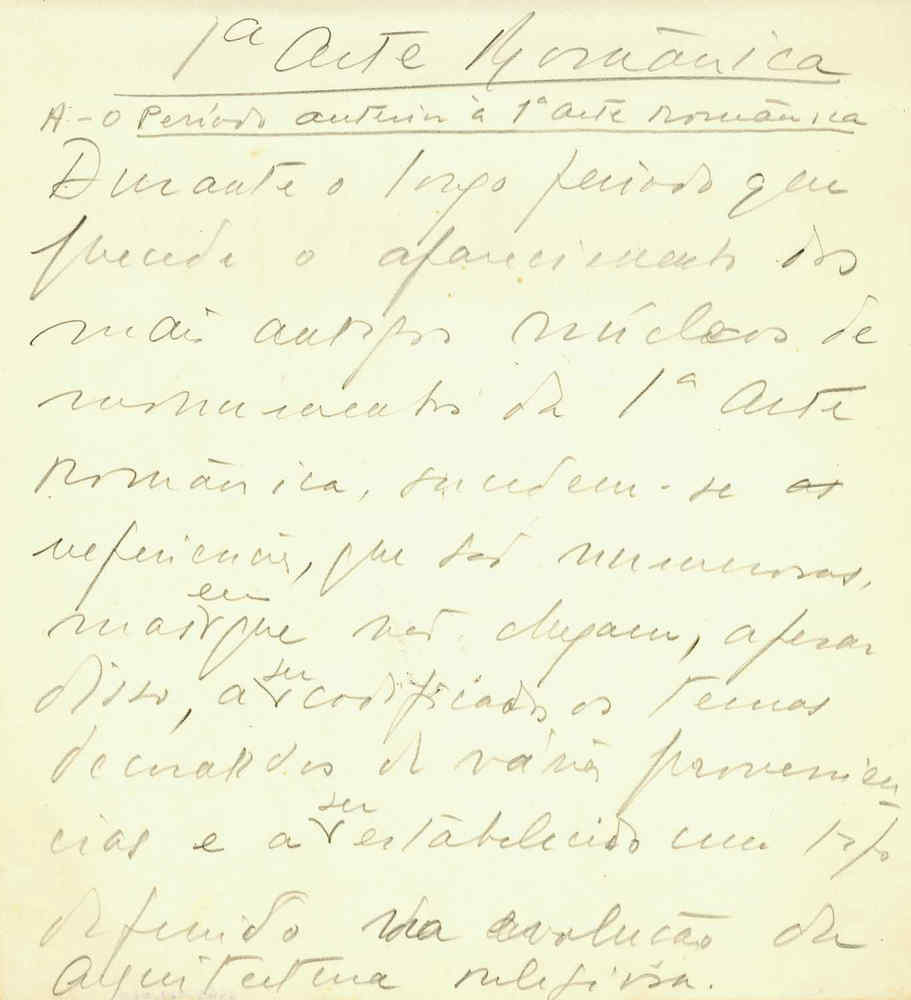 1ª Arte Românica
A - O Período anterior à 1ª Arte Românica
Durante o longo periodo que
precede o aparecimento dos
mais antigos núcleos de
monumentos da 1ª Arte
Românica, sucedem-se as
referencias, que são numerosas,
mas em que não chegam, apesar
disso, a ser codificados os temas
decorados de várias provenien-
cias e a ser estabelecido um tipo
definido na evolução da
Arquitectura religiosa.